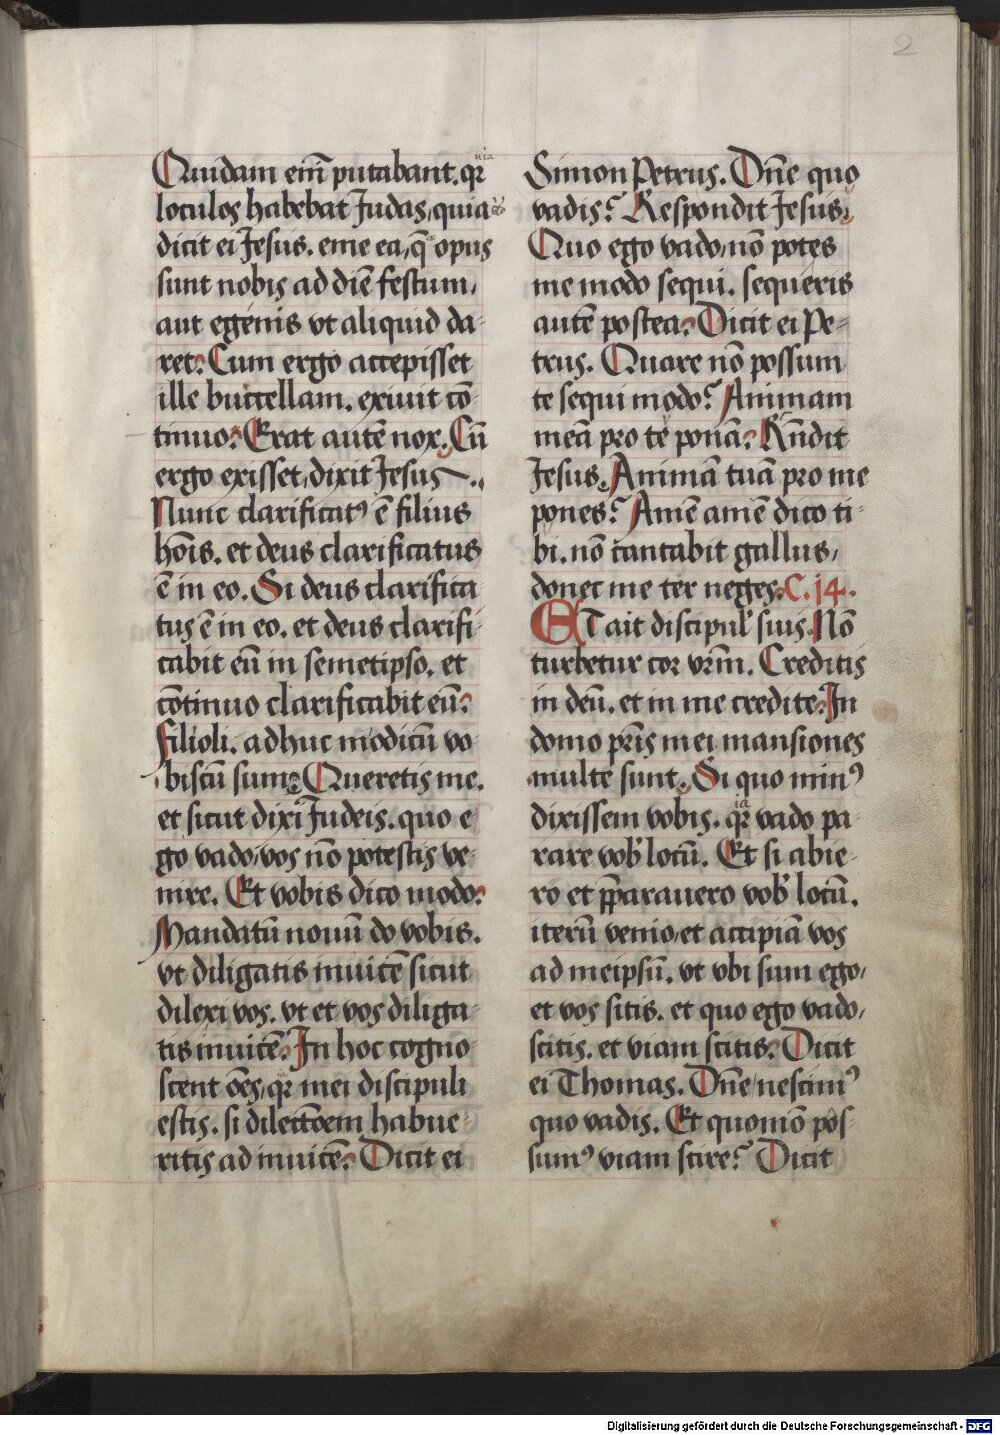 2
Quidam em̄ putabant. qr̄
loculos habebat Judas, quia
dicit ei Jesus. eme ea, q̄ opus
sunt nobis ad diē festum,
aut egenis vt aliquid da-
ret. Cum ergo accepisset
ille buccellam. exiuit cō
tinuo. Erat autē nox. Cū
ergo exisset, dixit Jesus.
Nunc clarificatꝰ ē filius
hoīs. et deus clarificatus
ē in eo. Si deus clarifica
tus ē in eo. et deus clarifi-
cabit eū in semetipso. et
cōtinuo clarificabit eū.
Filioli. adhuc modicū vo
biscū sum. Queretis me.
et sicut dixi Judeis. quo e-
go vado, vos nō potestis ve-
nire. Et vobis dico modo.
Mandatū nouū do vobis.
vt diligatis inuicē sicut
dilexi vos. vt et vos diliga-
tis inuicē. In hoc cogno
scent oēs, qr̄ mei discipuli
estis. si dilectōem habue-
ritis ad inuicē. Dicit ei
Simon Petrus. Dn̄e quo
vadis? Respondit Jesus,
Quo ego vado, nō potes
me modo sequi. sequeris
autē postea. Dicit ei Pe-
trus. Quare nō possum
te sequi modo? Animam
meā pro te ponā. Rn̄dit
Jesus. Animā tuā pro me
pones? Amē amē dico ti-
bi. nō cantabit gallus,
donec me ter neges. C. 14.
ET ait discipul' suis. Nō
turbetur cor vr̄m. Creditis
in deū. et in me credite. In
domo pr̄is mei mansiones
multe sunt. Si quo minꝰ
dixissem vobis. qr̄ vado pa-
rare vob' locū. Et si abie-
ro et p̄parauero vob' locū.
iterū venio, et accipiā vos
ad meipsū. vt vbi sum ego,
et vos sitis. et quo ego vado,
scitis. et viam scitis. Dicit
ei Thomas. Dn̄e, nescimꝰ
quo vadis. Et quomō pos-
sumꝰ viam scire? Dicit
Digitalisierung gefördert durch die Deutsche Forschungsgemeinschaft - DFG